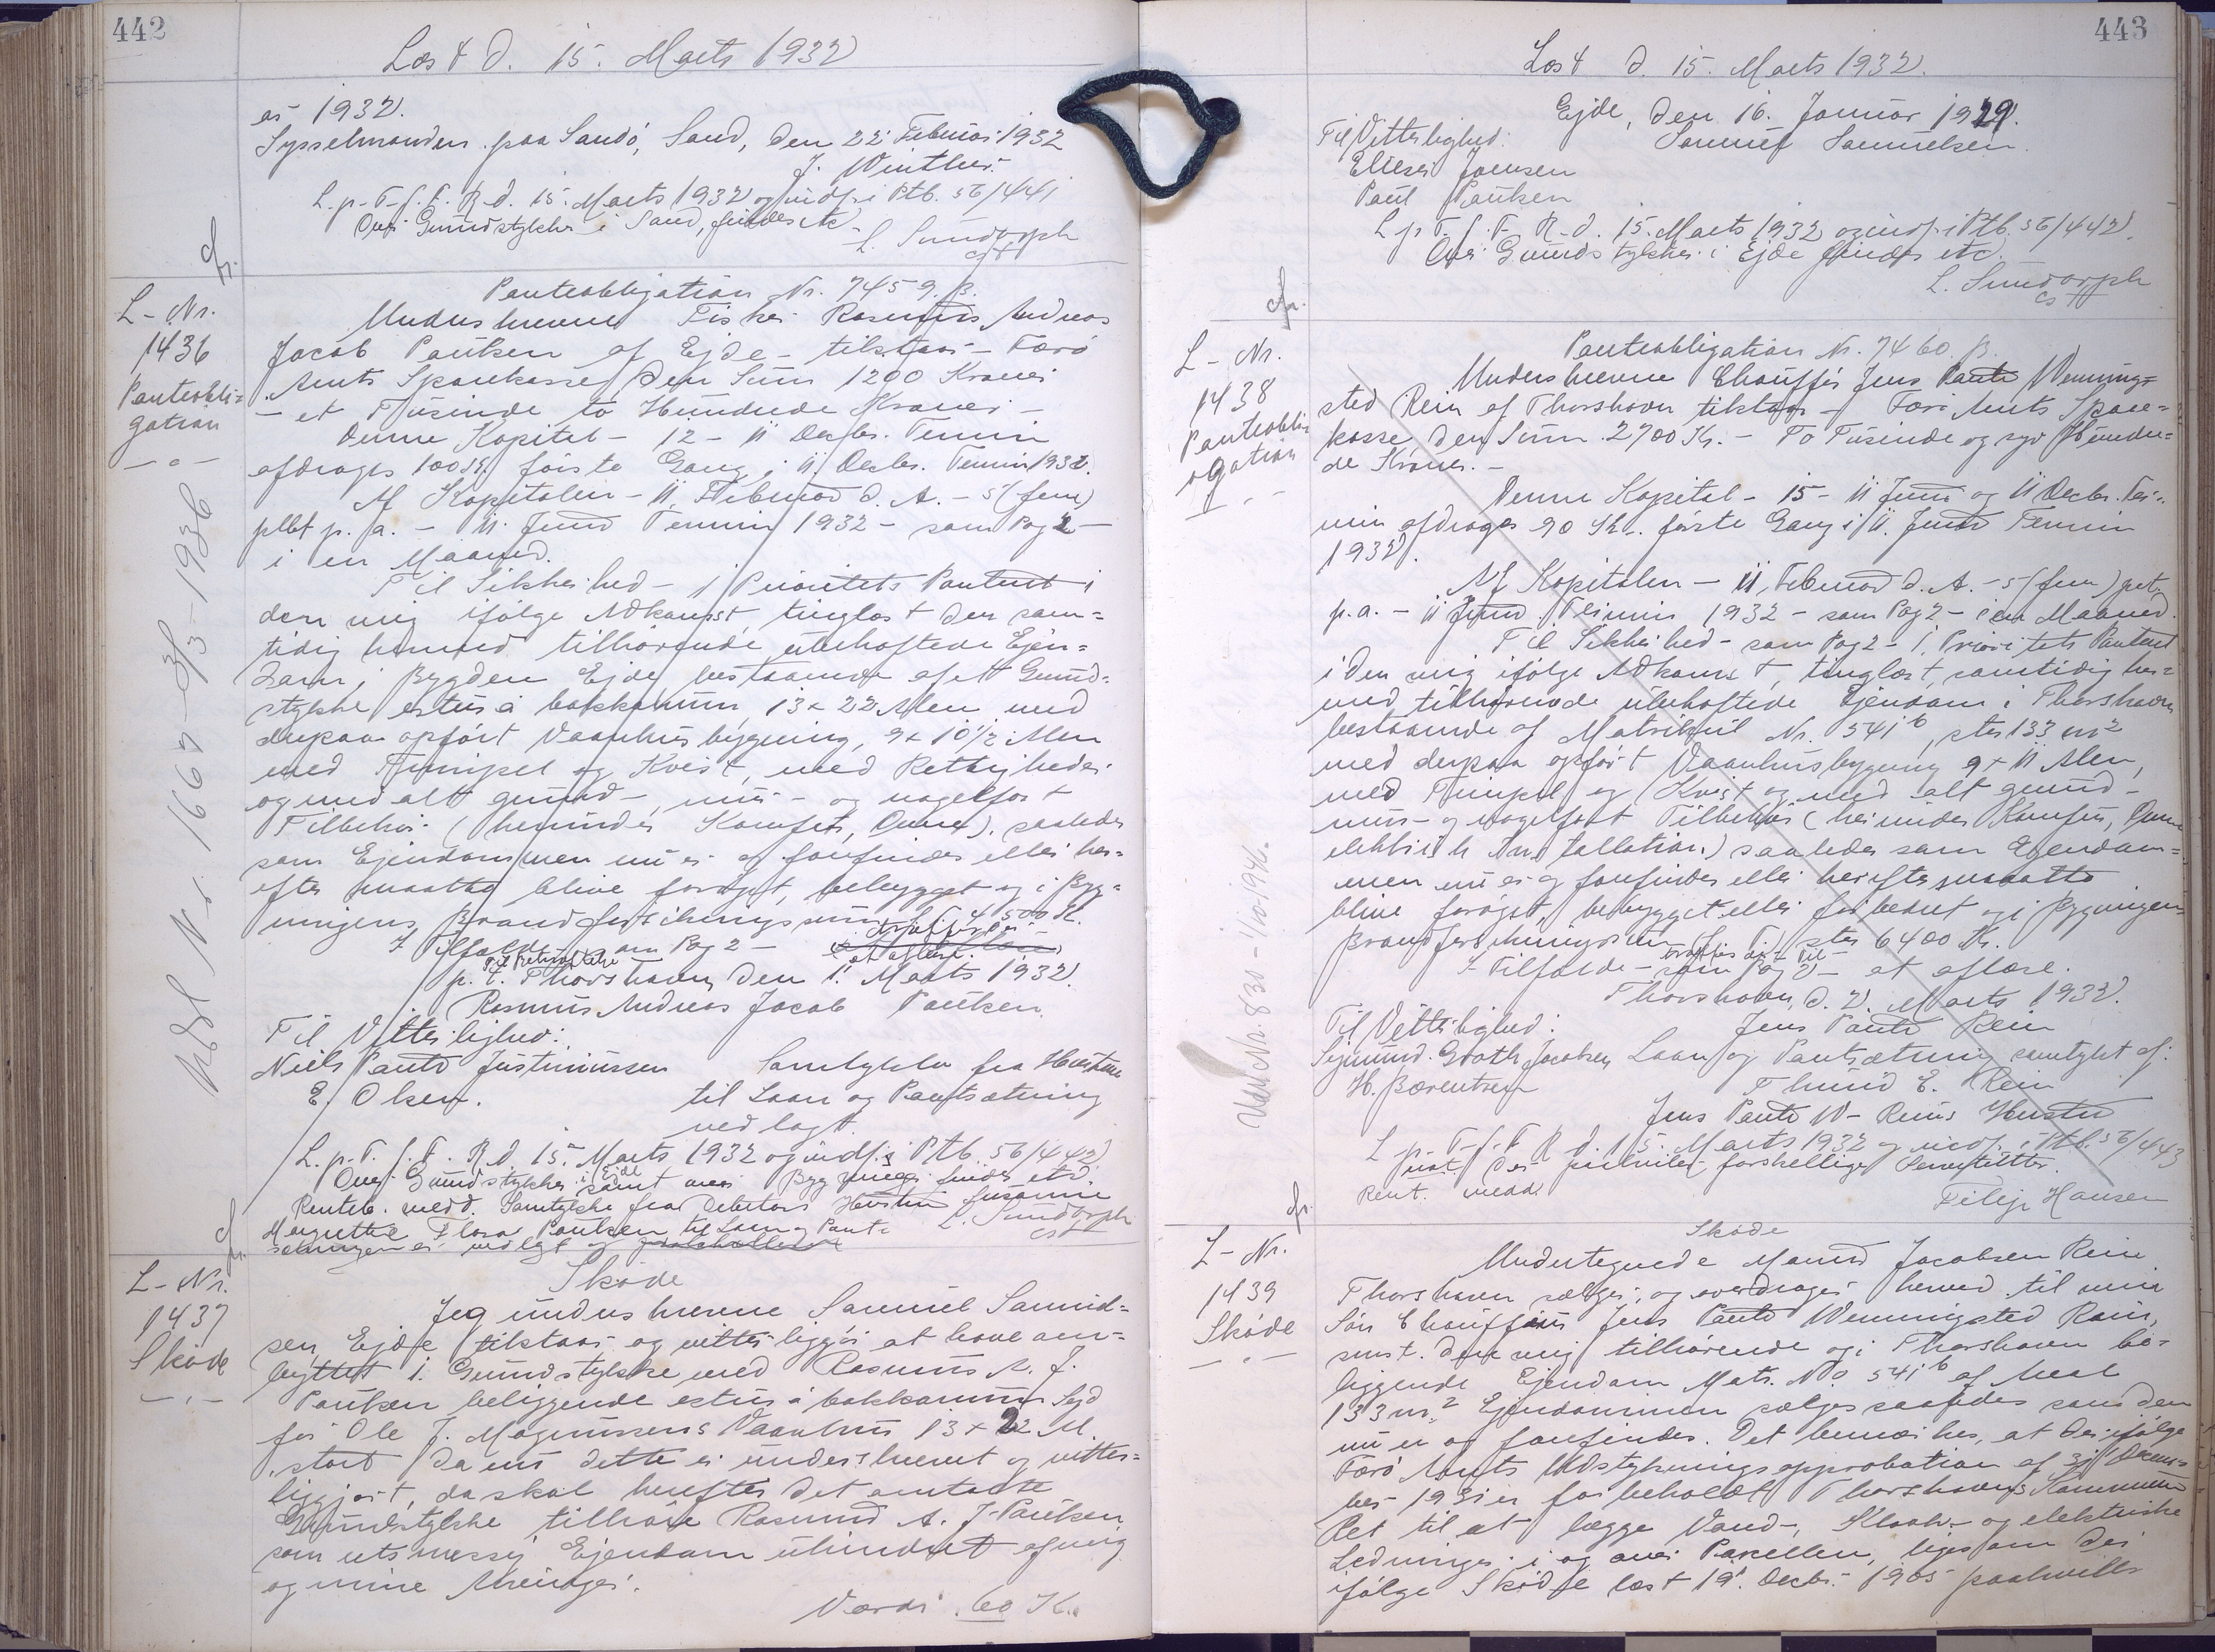 442
Læst d. 15. Marts 1932
er 1932.
Sysselmanden paa Sandø, Sand, den 22 Februar 1932
J. Winther.
L. p. T. f. F. R. d. 15. Marts 1932 og indf. i Ptb. 56/441
Over Grundstykker i Sand, findes etc.
L. Sundorph
cst
cfr.
L-Nr.
1436
Panteobli=
gation
Panteobligation Nr. 7459. B.
Underskrevne Fisker Rasmus Andreas
Jacob Paulsen af Ejde - tilstaar - Færø
Amts Sparekasse den Sum 1200 Kroner
- et Tusinde to Hundrede Kroner -
Denne Kapital - 12 - 11 Decbr. Termin
afdrages 100 Kr. første Gang i 11. Decbr. Termin 1932.
Af Kapitalen - 11. Februar d. A. - 5 (fem)
pCt p. a. - 11. Juni Termin 1932 - som Pag 2 -
i en Maaned.
Til Sikkerhed - 1 Prioritets Panteret i
den mig ifølge Adkomst, tinglæst den sam=
tidig hermed tilhørende ubehæftede Ejen=
dom i Bygden Ejde bestaaende af et Grund=
stykke estur á bakkanum 13 x 22 Alen med
derpaa opført Vaanhusbygning, 9 x 10½ Alen
med Frempel og Kvist, med Rettigheder
og med alt grund-, mur- og nagelfast
Tilbehør (herunder Komfur, Ovne) saaledes
som Ejendommen nu er og forefindes eller her=
efter maatte blive forøget, bebygget og i Byg=
ningens Brandforsikringssum 4500 Kr.
I Tilfælde - som Pag 2 - at aflæse.
p. t. Thorshavn, den 1. Marts 1932.
Rasmus Andreas Jacob Paulsen.
Til Vitterlighed:
Niels Pauli Justinussen Samtykke fra Hustru
E. Olsen. til Laan og Pantsætning
vedlagt.
L. p. T. f. F. R. d. 15. Marts 1932 og indf. i Ptb. 56/442
Over Grundstykker i Ejde samt over Bygninger findes etc.
Renteb. medd. Samtykke fra Debitors Hustru Susanne
Margrethe Flora Paulsen til Laan og Pant-
sætningen er vedlagt og
L. Sundorph
cst
Udsl Nr. 1669 - 3/3-1936
cfr.
L-Nr.
1437
Skøde
Skøde
Jeg underskrevne Samuel Samuel=
sen, Ejde tilstaar og vitterliggør at have om=
byttet 1. Grundstykke med Rasmus A. J.
Paulsen beliggende estur á bakkanum Syd
for Ole J. Magnussens Vaanhus 13 x 22 Al.
stort Da nu dette er underskrevet og vitter=
liggjort, da skal herefter det omtalte
Grundstykke tilhøre Rasmus A. J. Paulsen
som retsmessig Ejendom uhindret af mig
og mine Arvinger.
Værdi 60 Kr.
443
Læst d. 15. Marts 1932.
Ejde, den 16. Januar 1929.
Til Vitterlighed: Samuel Samuelsen.
Elieser Joensen
Paul Paulsen
L. p. T. f. F. R. d. 15. Marts 1932 og indf. i Ptb. 56/442.
Over Grundstykker i Ejde findes etc.
L. Sundorph
cst
cfr.
L-Nr.
1438
Panteobli=
gation
Panteobligation Nr. 7460. B.
Underskrevne Chauffør Jens Pauli Wennings=
sted Rein af Thorshavn tilstaar - Færø Amts Spare=
kasse den Sum 2700 Kr. - To Tusinde og syv Hundre=
de Kroner. -
Denne Kapital - 15 - 11 Juni og 11 Decbr. Ter=
min afdrages 90 Kr. første Gang i 11. Juni Termin
1932.
Af Kapitalen - 11. Februar d. A. - 5 (fem) pct.
p. a. - 11 Juni Termin 1932 - som Pag 2 - i en Maaned.
Til Sikkerhed - som Pag 2 - 1. Prioritets Panteret
i den mig ifølge Adkomst, tinglæst, samtidig her=
med tilhørende ubehæftede Ejendom i Thorshavn
bestaaende af Matrikul Nr. 541 b, stor 133 m²
med derpaa opført Vaanhusbygning 9 x 11 Alen,
med Frempel og Kvist og med alt grund-
mur- og nagelfast Tilbehør (herunder Komfur, Ovne
elektrisk Installation) saaledes som Ejendom=
men nu er og forefindes eller herefter maatte
blive forøget, bebygget eller forbedret og i Bygningens
Brandforsikringssum stor 6400 Kr.
I Tilfælde - som Pag 2 - at aflæse.
Thorshavn, d. 2. Marts 1932.
Til Vitterlighed: Jens Pauli Rein
Sigmund Groth Jacobsen Laan og Pantsætning samtykt af:
H. Bærentsen Thurid E. Rein
Jens Pauli W- Reins Hustru
L. p. T. f. F. R. d. 15. Marts 1932 og indf. i Ptb. 56/443
Pant. Der paahviler forskellige Servitutter.
Rent. medd.
Filip Hansen
Udsl Nr. 830 - 1/10 1946.
cfr.
L-Nr.
1439
Skøde
Skøde
Undertegnede Maurus Jacobsen Rein
Thorshavn sælger og overdrager herved til min
Søn Chauffør Jens Pauli Wenningsted Rein,
smst. den mig tilhørende og i Thorshavn be=
liggende Ejendom Matr. No. 541 b af Areal
133 m². Ejendommen sælges saaledes som den
nu er og forefindes. Det bemærkes, at der ifølge
Færø Amts Udstykningsapprobation af 31 Decem=
ber 1931 er forbeholdt Thorshavns Kommune
Ret til at lægge Vand-, Kloak- og elektriske
Ledninger i og over Parcellen, ligesom der
ifølge Skøde læst 19. Decbr. 1905 paahviler